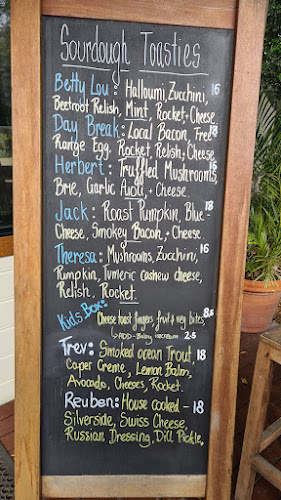 Sourdough Toasties
Betty Lou: Halloumi, Zucchini, 16
Beetroot Relish, Mint, Rocket + Cheese
Day Break: Local Bacon, Free 18
Range Egg, Rocket, Relish, Cheese
Herbert: Truffled Mushrooms, 16
Brie, Garlic Aioli, + Cheese
Jack: Roast Pumpkin, Blue - 18
Cheese, Smokey Bacon, + Cheese.
Theresa: Mushrooms, Zucchini, 16
Pumpkin, Tumeric cashew cheese,
Relish, Rocket.
Kids Box:
Cheese toast fingers, fruit & veg bites, 8.5
ADD - Baby icecream 2.5
Trev: Smoked ocean Trout, 18
Caper Creme, Lemon Balm,
Avocado, Cheeses, Rocket.
Reuben: House cooked - 18
Silverside, Swiss Cheese,
Russian Dressing, Dill Pickle,